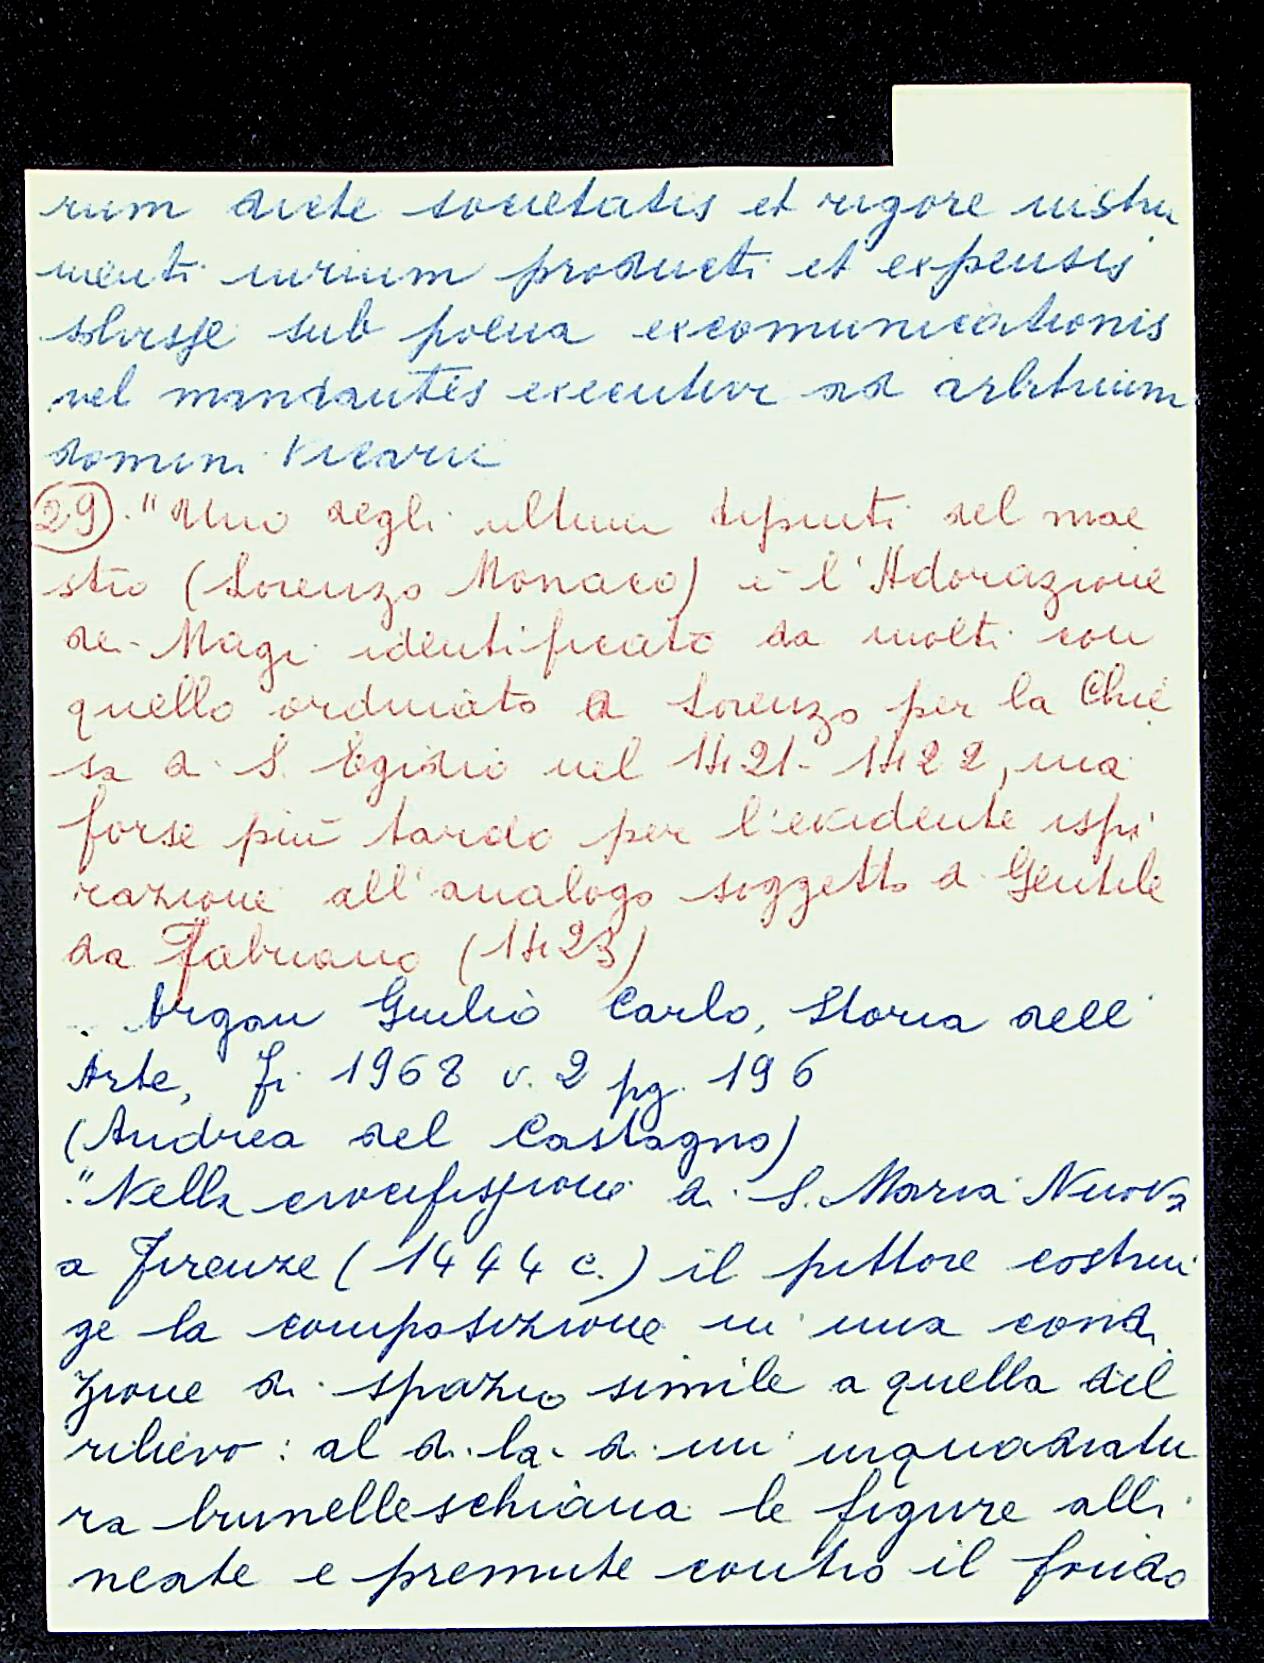 rum dicte societatis et rigore instru
menti iurium producti et expensis
sub poena excomunicationis
vel mandantes executive ad arbitrium
domini Vicarii
29. "Uno degli ultimi dipinti del mae
stro (Lorenzo Monaco) è l'Adorazione
dei Magi identificato da molti con
quello ordinato a Lorenzo per la Chie
sa di S. Egidio nel 1421-1422, ma
forse più tardo per l'evidente ispi
razione all'analogo soggetto di Gentile
da Fabriano (1423)
Argan Giulio Carlo, Storia dell'
Arte, Fi. 1968 v. 2 pg. 196
(Andrea del Castagno)
"Nella crocifissione di S. Maria Nuova
a Firenze (1444 c.) il pittore costrui
ge la composizione in una condi
zione di spazio simile a quella del
rilievo: al di là di un' inquadratu
ra brunelleschiana le figure alli
neate e premute contro il fondo